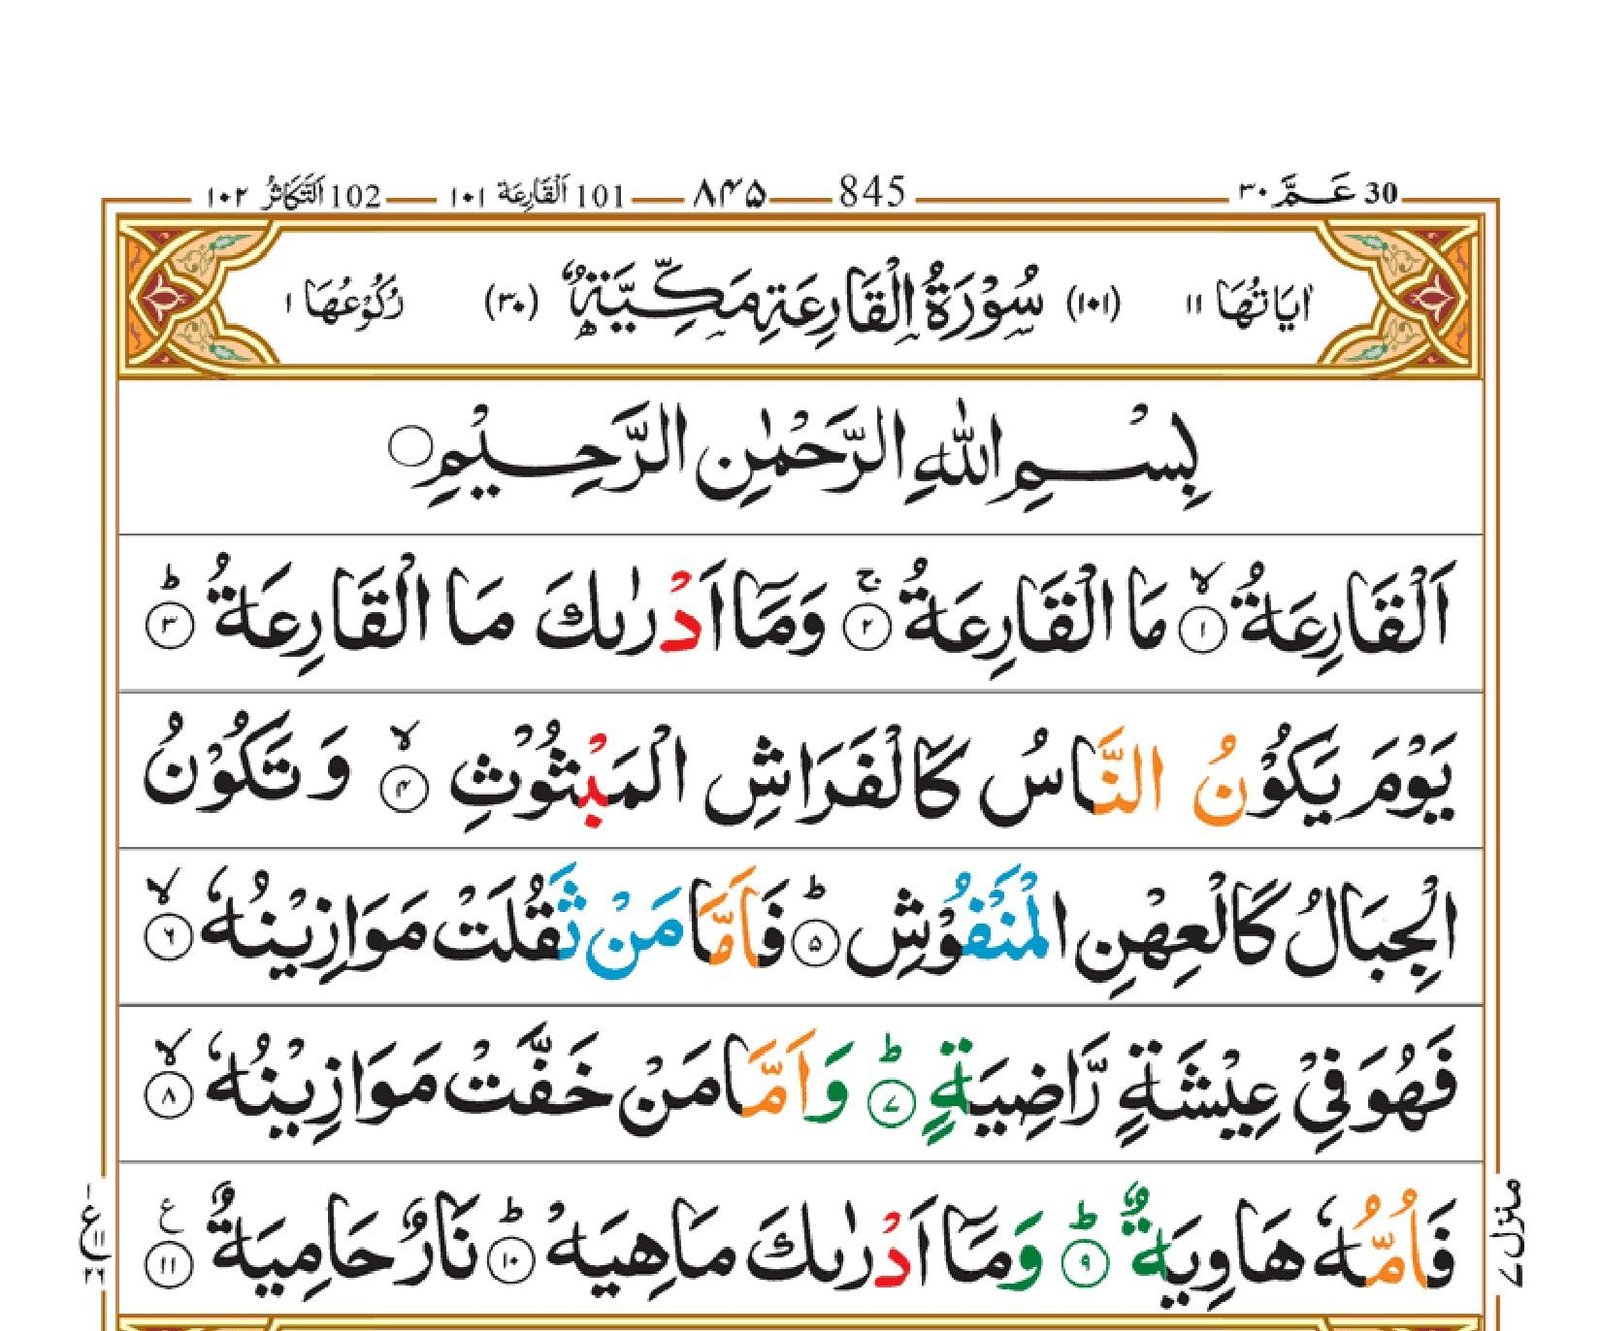 30 عَـمَّ ٣٠ 845 ٨۴۵ 101 اَلْقَارِعَة ١٠١ 102 اَلتَّكَاثُر ١٠٢
اٰيَاتُهَا ١١ (١٠١) سُوْرَةُ الْقَارِعَةِ مَكِّيَّةٌ (٣٠) رُكُوْعُهَا ١
بِسْمِ اللّٰهِ الرَّحْمٰنِ الرَّحِيْمِ
اَلْقَارِعَةُ ۙ ﴿١﴾ مَا الْقَارِعَةُ ۚ ﴿٢﴾ وَمَاۤ اَدْرٰىكَ مَا الْقَارِعَةُ ؕ ﴿٣﴾
يَوْمَ يَكُوْنُ النَّاسُ كَالْفَرَاشِ الْمَبْثُوْثِ ۙ ﴿۴﴾ وَتَكُوْنُ
الْجِبَالُ كَالْعِهْنِ الْمَنْفُوْشِ ؕ ﴿۵﴾ فَاَمَّا مَنْ ثَقُلَتْ مَوَازِيْنُهٗ ۙ ﴿۶﴾
فَهُوَ فِيْ عِيْشَةٍ رَّاضِيَةٍ ؕ ﴿٧﴾ وَاَمَّا مَنْ خَفَّتْ مَوَازِيْنُهٗ ۙ ﴿٨﴾
فَاُمُّهٗ هَاوِيَةٌ ؕ ﴿٩﴾ وَمَاۤ اَدْرٰىكَ مَاهِيَهْ ؕ ﴿١٠﴾ نَارٌ حَامِيَةٌ ﴿١١﴾ ع
منزل ٧
١ ع ١١ ٢٦